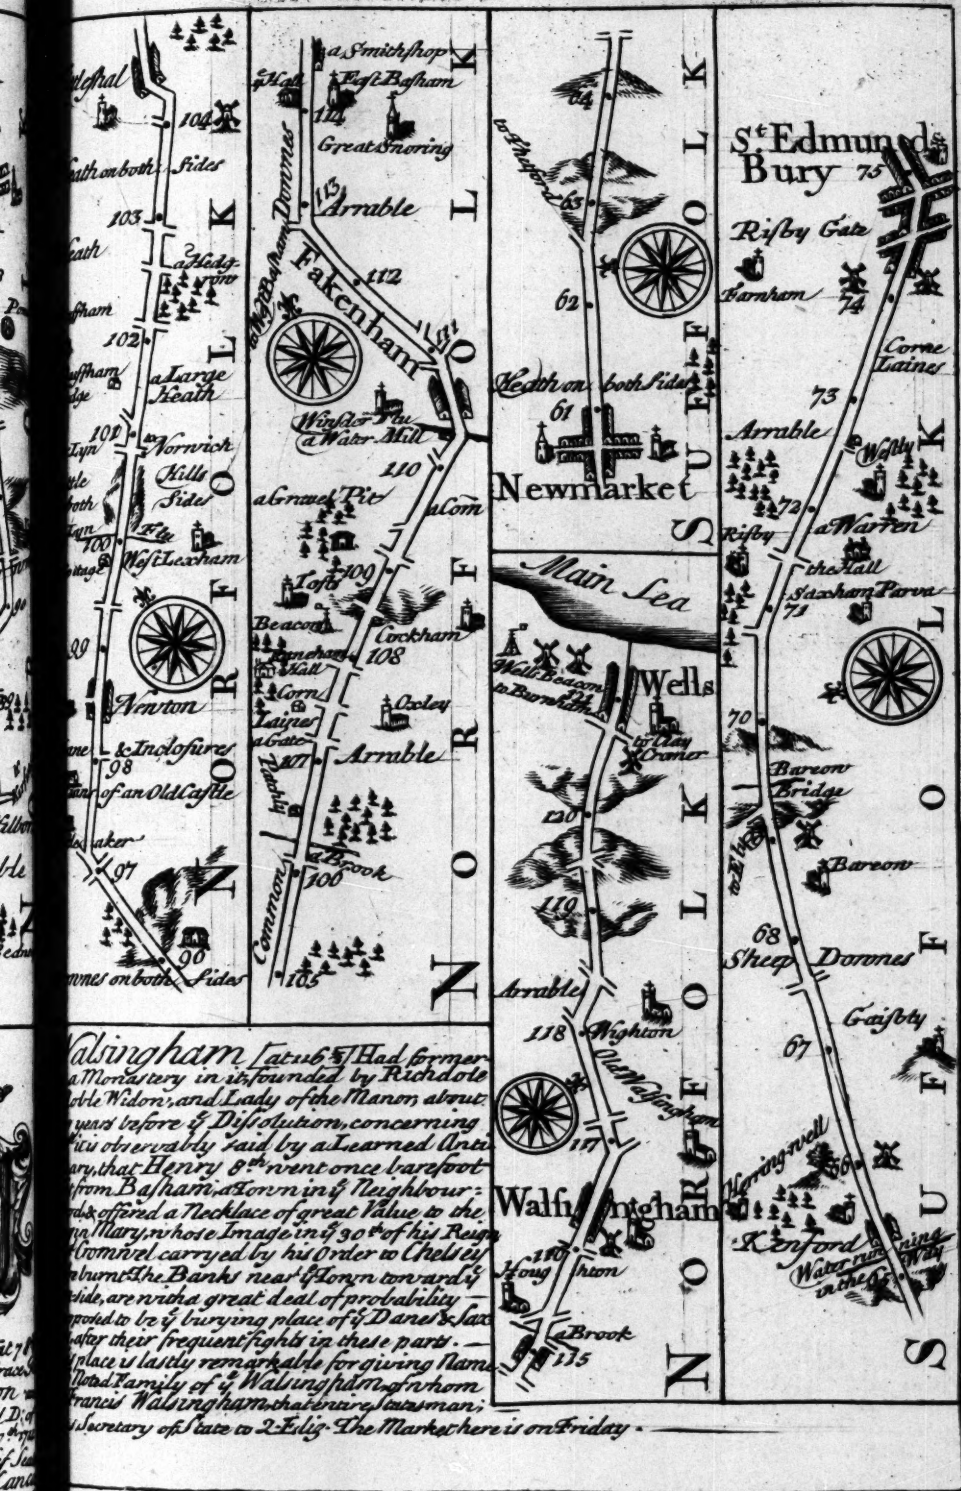 104
Sides
103
eath
a Hedg
row
102
a Large
Heath
101
to Norwich
Hills
Side
100
Flu
West Lexham
99
Newton
& Inclosures
98
of an Old Castle
97
96
on both Sides
NORFOLK
a Smithshop
yͤ Hall
East Basham
114
Great Snoring
113
Arrable
Downes
to West Basham
112
Fakenham
111
Winsder Flu
a Water Mill
110
a Gravel Pit
a Com̃
109
Tofts
Beacon
Cockham
108
Hall
Corn
Laines
Oxley
a Gate
107
Arrable
a Brook
106
Common
105
NORFOLK
64
to Thetford
63
62
Heath on both sides
61
Newmarket
SUFFOLK
Main Sea
Wells Beacon
to Burnham
121
Wells
to Clay
Cromer
120
119
Arrable
118
Wighton
Old Walsingham
117
Walsingham
116
Houghton
a Brook
115
NORFOLK
Sᵗ Edmunds
Bury 75
Risby Gate
Farnham
74
Corne
Laines
73
Arrable
Westly
72
Risby
a Warren
the Hall
Saxham Parva
71
70
Bareow
Bridge
to Ely
Bareow
68
Sheep Downes
67
Gaisbty
Herringwell
66
Kenford
Water running
in the Way
65
SUFFOLK
Walsingham [at 116 5] Had former
a Monastery in it, founded by Richdole
oble Widow, and Lady of the Manor, about
years before yͤ Dissolution, concerning
it is observably said by a Learned Anti
ary, that Henry 8th went once barefoot
from Basham, a Town in yͤ Neighbour:
od & offered a Necklace of great Value to the
in Mary, whose Image in yͤ 30th of his Reign
Cromwel carryed by his Order to Chelsey
burnt. The Banks near yͤ Town toward yͤ
side, are with a great deal of probability
posed to be yͤ burying place of yͤ Danes & Sax
after their frequent fights in these parts.
place is lastly remarkable for giving Name
Noted Family of yͤ Walsingham, of whom
Francis Walsingham, that entire Statesman;
Secretary of State to Q. Eliz. The Market here is on Friday.